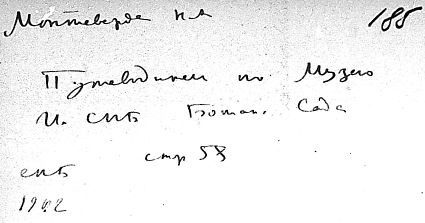 Монтеверде НА 188
Путеводитель по Музею
И. СПБ Ботан. Сада
стр 58
СПБ
1902